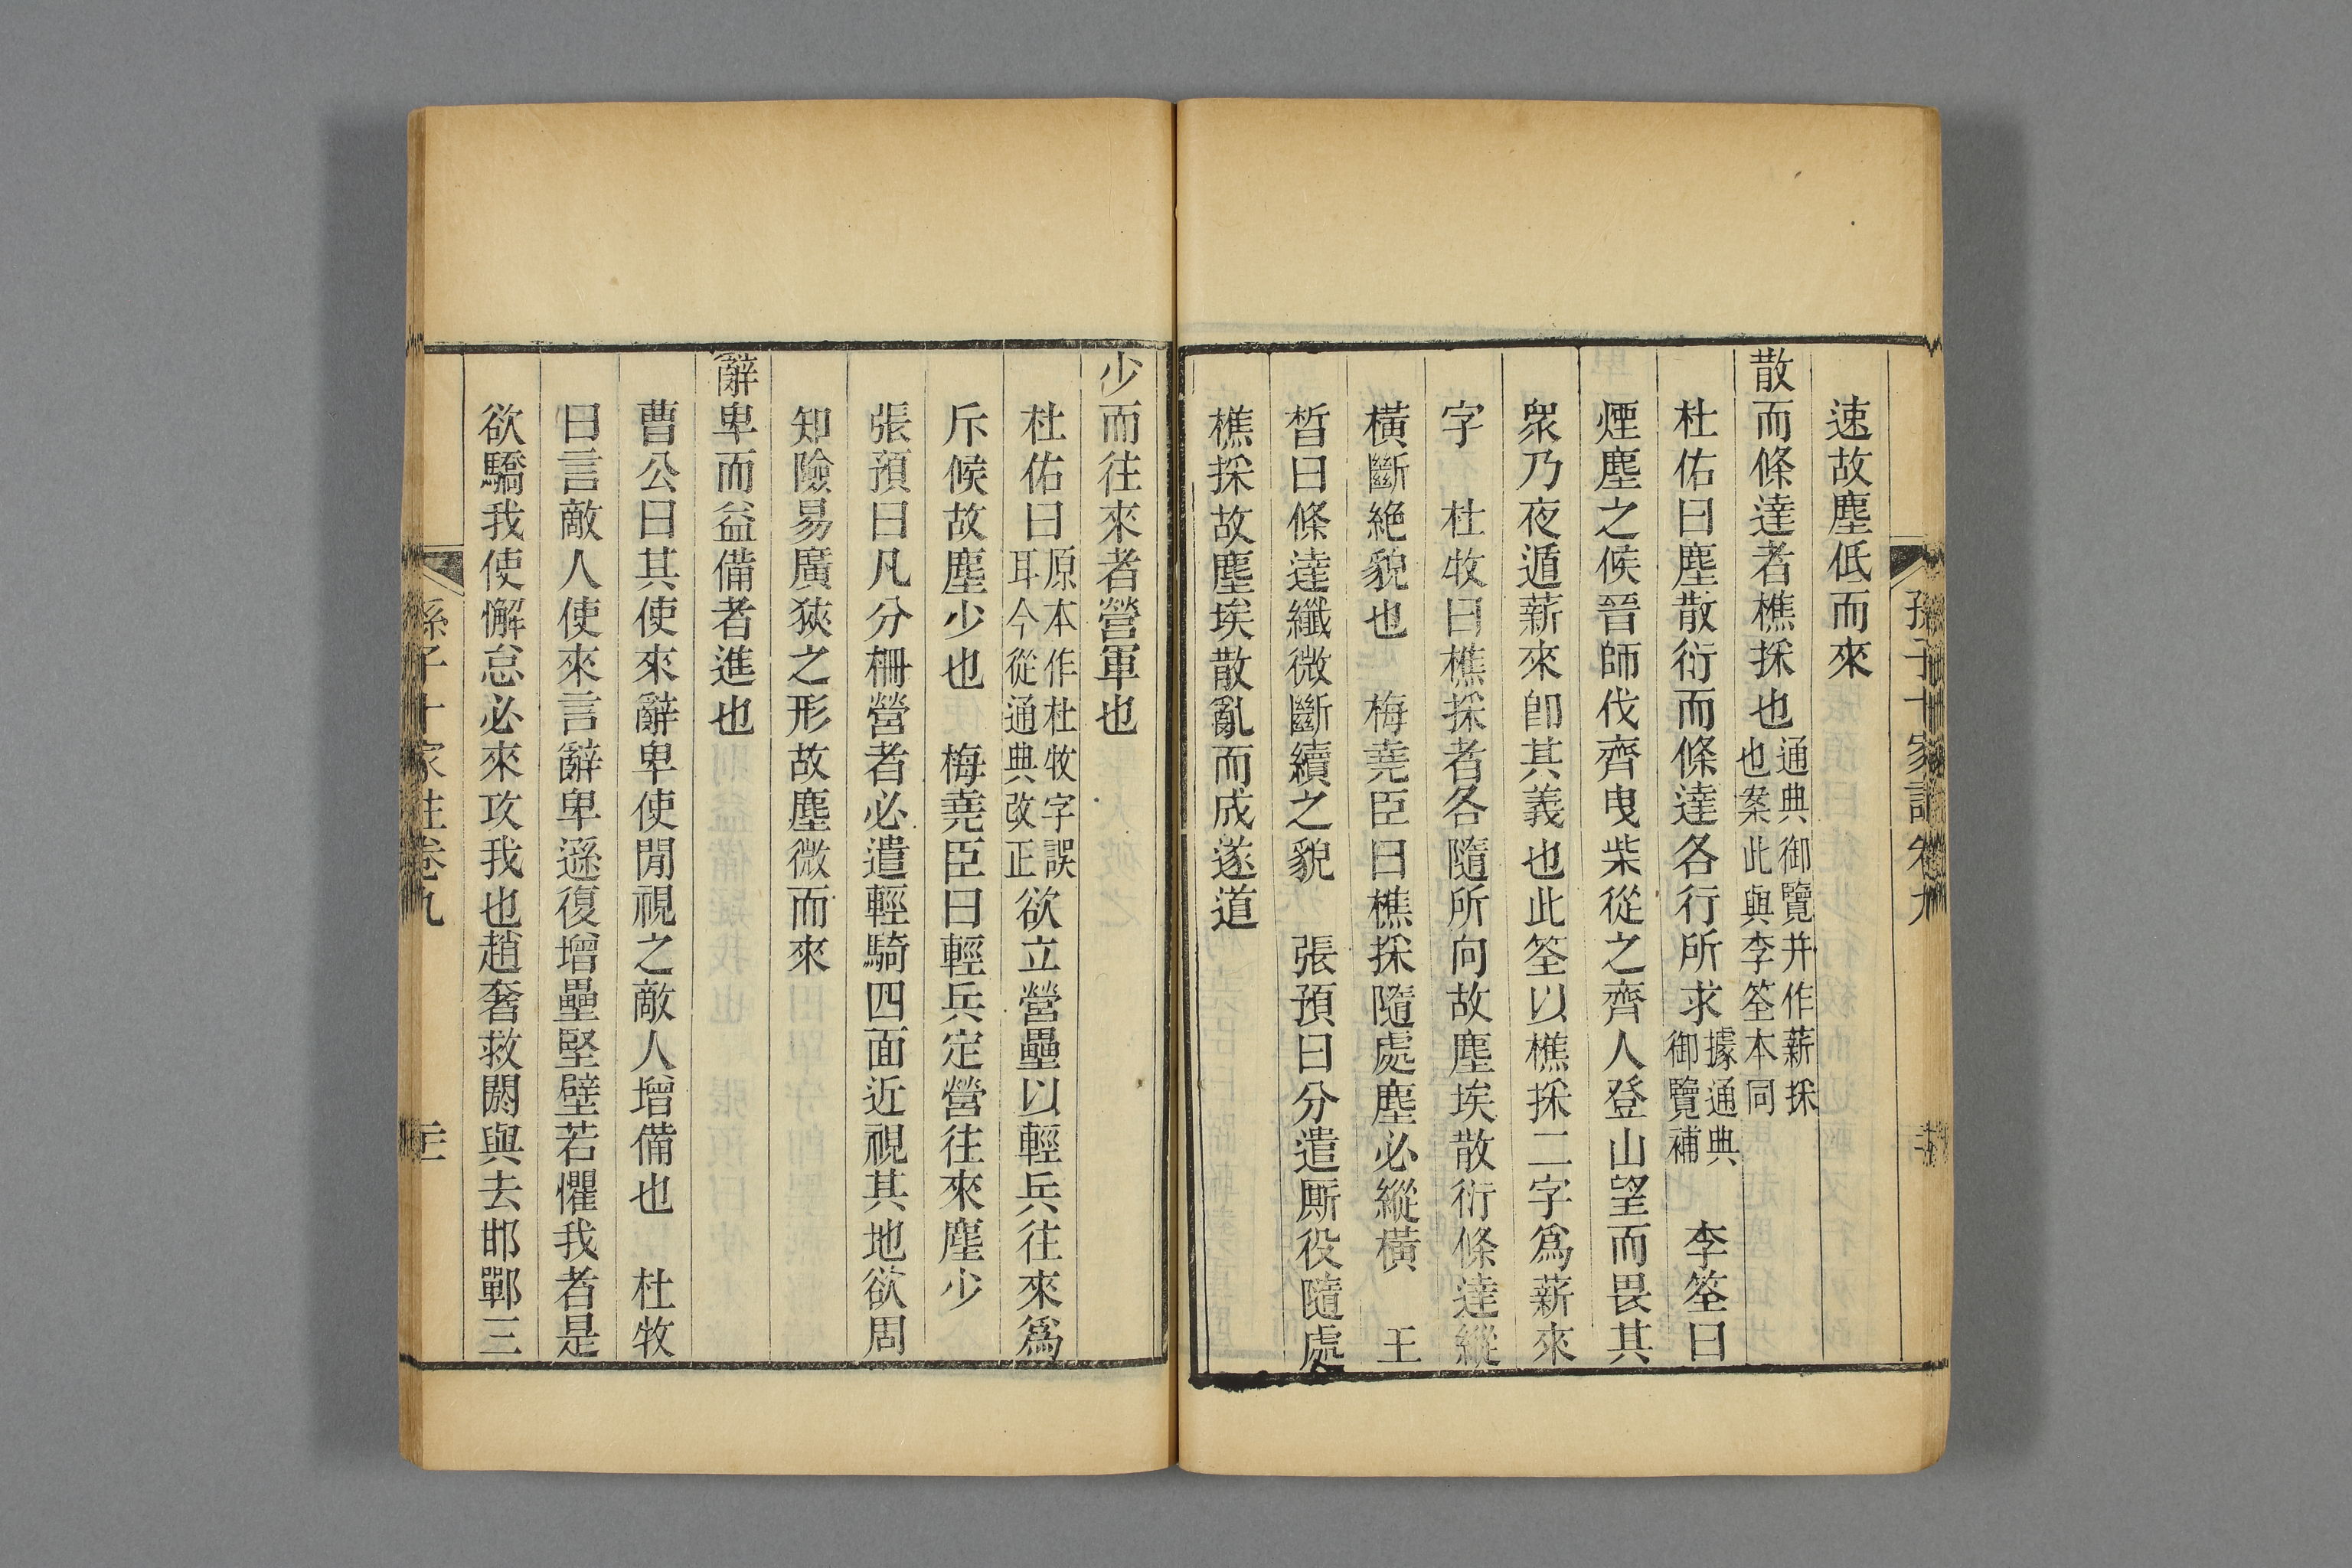 孫子十家註卷九
速故塵低而來
散而條達者樵採也通典御覽并作薪採也案此與李筌本同
杜佑曰塵散衍而條達各行所求據通典御覽補　李筌曰
煙塵之候晉師伐齊曳柴從之齊人登山望而畏其
眾乃夜遁薪來卽其義也此筌以樵採二字爲薪來
字　杜牧曰樵採者各隨所向故塵埃散衍條達縱
橫斷絕貌也　梅堯臣曰樵採隨處塵必縱橫　王
晳曰條達纖微斷續之貌　張預曰分遣厮役隨處
樵採故塵埃散亂而成遂道
少而往來者營軍也
杜佑曰原本作杜牧字誤耳今從通典改正欲立營壘以輕兵往來爲
斥候故塵少也　梅堯臣曰輕兵定營往來塵少
張預曰凡分柵營者必遣輕騎四面近視其地欲周
知險易廣狹之形故塵微而來
辭卑而益備者進也
曹公曰其使來辭卑使閒視之敵人增備也　杜牧
曰言敵人使來言辭卑遜復增壘堅壁若懼我者是
欲驕我使懈怠必來攻我也趙奢救閼與去邯鄲三
孫子十家註卷九